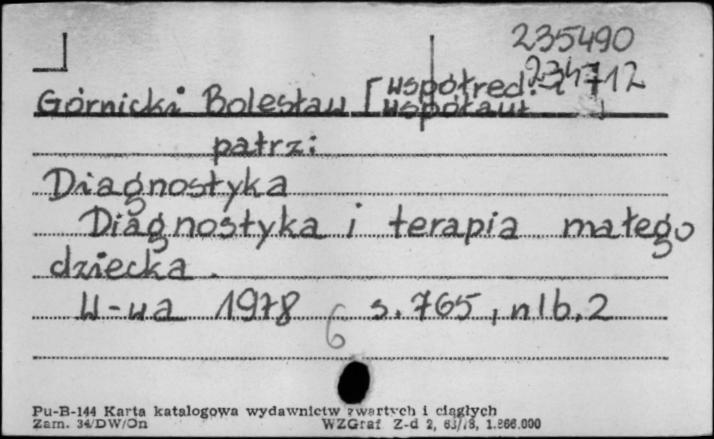 235490
234712
Górnicki Bolesław [współred. i
współaut.]
patrz:
Diagnostyka
Diagnostyka i terapia małego
dziecka.
W-wa 1978 s. 765, nlb. 2
6
Pu-B-144 Karta katalogowa wydawnictw zwartych i ciągłych
Zam. 34/DW/On WZGraf Z-d 2, 63/78, 1.866.000